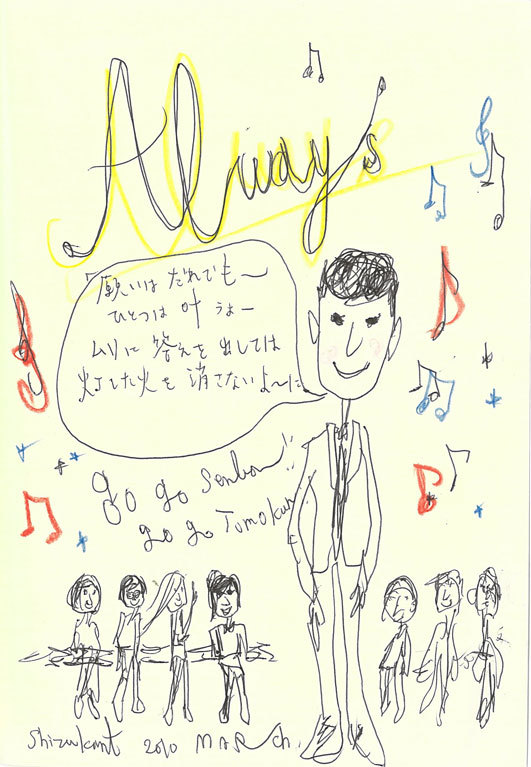 Always
「願いは だれでも〜
ひとつは 叶うよー
ムリに 答えを 出しては
灯した火を 消さないよ〜に
go go Senbon
go go Tomokun
2010 MARch.